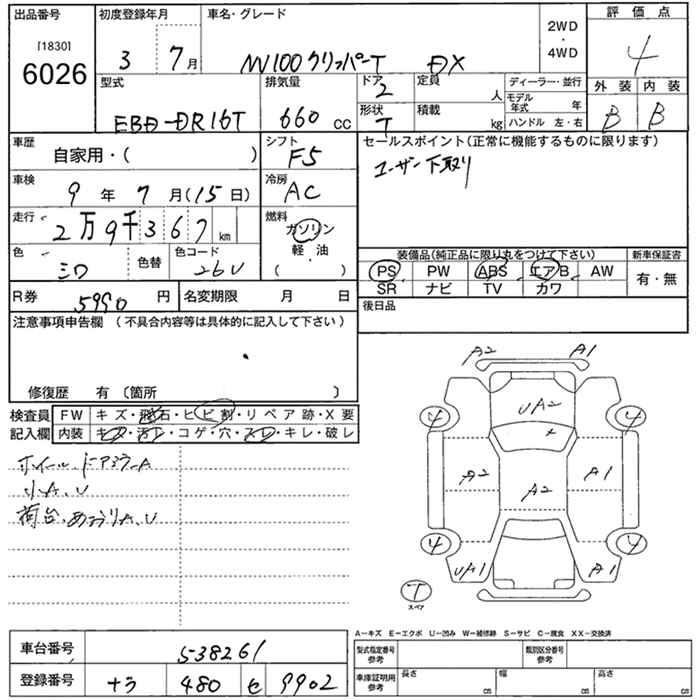 出品番号
[1830]
6026
初度登録年月
3 7月
車名・グレード
NV100クリッパーT DX
2WD
・
4WD
評価点
4
外装 内装
B B
型式
EBD-DR16T
排気量
660 CC
ドア
2
形状
T
定員
人
積載
kg
ディーラー・並行
モデル年式 年
ハンドル 左・右
車歴
自家用・( )
シフト
F5
セールスポイント(正常に機能するものに限ります)
ユーザー下取り
車検
9年 7月(15日)
冷房
AC
走行
2万9千367km
燃料
ガソリン
軽・油
( )
色
シロ
色替
色コード
26U
装備品(純正品に限り丸をつけて下さい)
PS PW ABS エアB AW
SR ナビ TV カワ
新車保証書
有・無
R券
5990円
名変期限 月 日
後日品
注意事項申告欄 (不具合内容等は具体的に記入して下さい)
修復歴 有 〔箇所 〕
検査員記入欄
FW キズ・飛石・ヒビ割・リペア跡・X要
内装 キズ・汚レ・コゲ・穴・スレ・キレ・破レ
小A.U
荷台.あおりA.U
A2 A1
UA2
4 4
A2 A1
A2
4 4
UA1 A1
T
スペア
A-キズ E-エクボ U-凹み W-補修跡 S-サビ C-腐食 XX-交換済
車台番号
538261
登録番号
ナラ 480 せ 9902
型式指定番号
参考
類別区分番号
参考
車庫証明用
参考
長さ cm
幅 cm
高さ cm